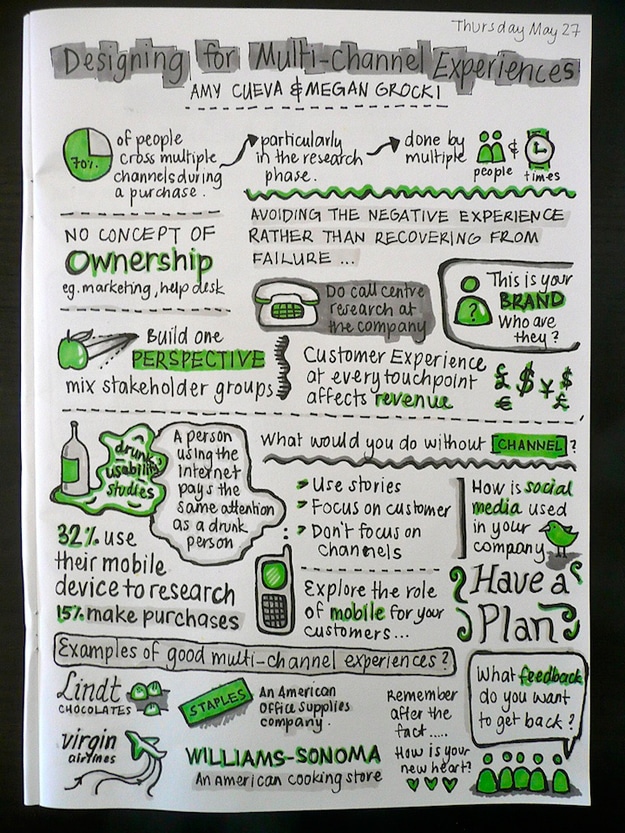 Thursday May 27
Designing for Multi-channel Experiences
AMY CUEVA & MEGAN GROCKI
70%
of people
cross multiple
channels during
a purchase.
particularly
in the research
phase.
done by
multiple
people
&
times
NO CONCEPT OF
Ownership
eg. marketing, help desk
AVOIDING THE NEGATIVE EXPERIENCE
RATHER THAN RECOVERING FROM
FAILURE ...
Do call centre
research at
the company
?
This is your
BRAND
Who are
they?
Build one
PERSPECTIVE
mix stakeholder groups
Customer Experience
at every touchpoint
affects revenue
£ $ ¥ $
€ £
drunk
usability
studies
A person
using the
internet
pays the
same attention
as a drunk
person
What would you do without CHANNEL?
Use stories
Focus on customer
Don't focus on
channels
How is social
media used
in your
company
32% use
their mobile
device to research
15% make purchases
Explore the role
of mobile for your
customers...
Have a
Plan
Examples of good multi-channel experiences?
Lindt
CHOCOLATES
STAPLES
An American
Office supplies
company.
Remember
after the
fact.....
How is your
new heart?
What feedback
do you want
to get back?
virgin
airlines
WILLIAMS-SONOMA
An American cooking store